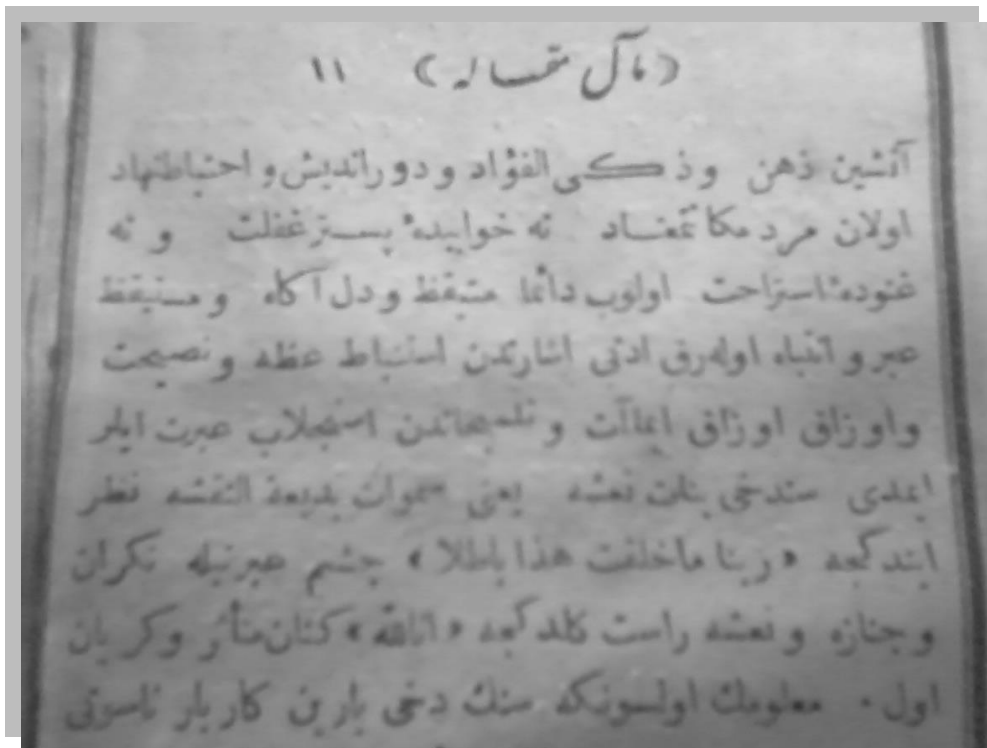 (مآل مقاله) ١١
آتشین ذهن و ذکی الفؤاد و دوراندیش و احتیاطنهاد
اولان مرد مکانمعتاد نه خوابیدهٔ بستر غفلت و نه
غنودهٔ استراحت اولوب دائما متیقظ و دل آکاه و مستیقظ
عبر و انتباه اوله‌رق ادنی اشارتدن استنباط عظه و نصیحت
واوراق ایماآت و تلمیحاتدن استجلاب عبرت ایلر
ایمدی سندخی بنات نعشه یعنی سموات بدیعة النقشه نظر
ایتدکجه «ربنا ماخلقت هذا باطلا» چشم عبرتیله نکران
و جنازه و نعشه راست کلدکجه «اناللّٰه» کنان متأثر و کریان
اول. معلومك اولسونکه سنك دخی یارین کاربار ناسوتی